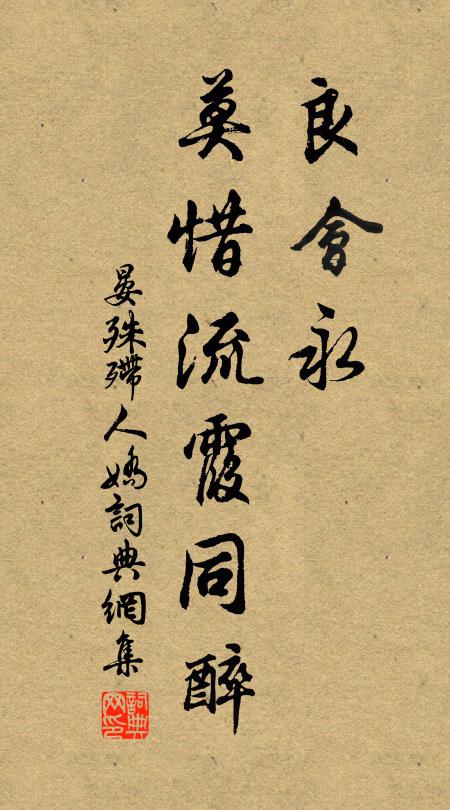 良會永
莫惜流霞同醉
晏殊殢人嬌詞典網集
詞典網印